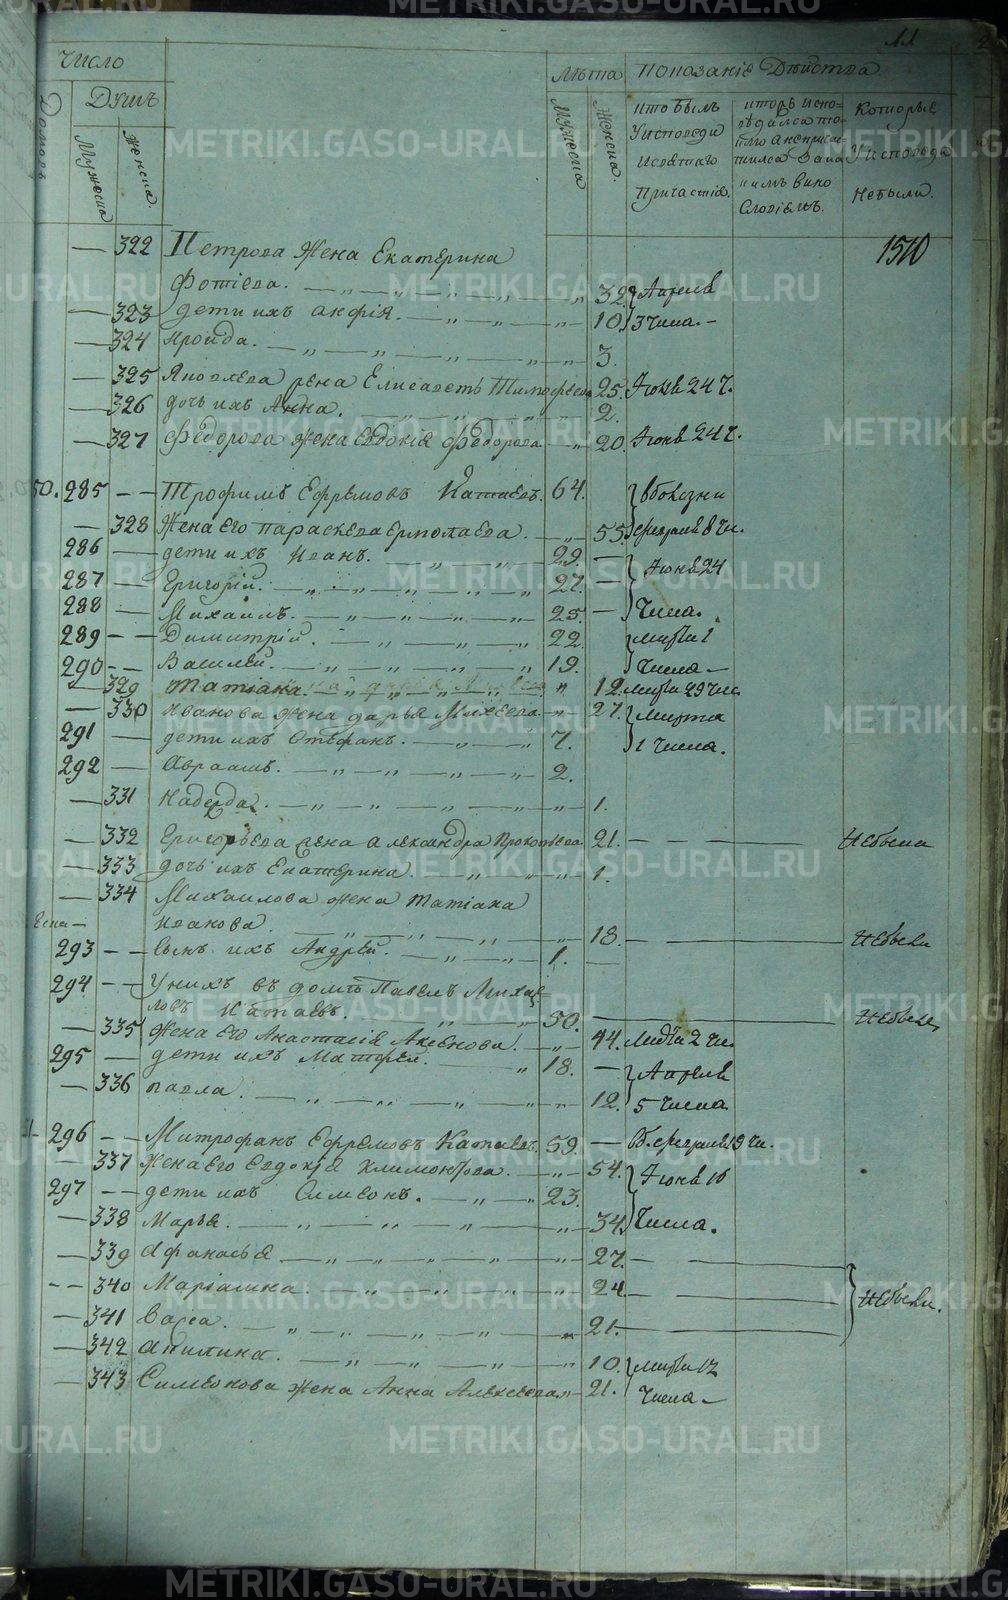 Число
Лѣта показаніе Дѣйства
Душъ
Домовъ
Мужеска
Женска.
Мужеска
Женска.
кто былъ
У исповеди
И святаго
Причастія.
Которые
У исповеди
Небыли
1510
322 Петрова Жена Екатерина
Фотіева. 32 Апреля
323 дети ихъ Анфія. 10 3 числа.
324 3.
325 Яковлева жена Елисаветъ Тимофеева 25. Іюня 24 ч.
326 дочь ихъ Анна. 2.
327 Федорова жена Евдокія Федорова 20. Іюня 24 ч.
50. 285 Трофимъ Ефремовъ Катаевъ. 64. в болезни
328 Жена его параскева ермолаева. 55. февраля 8 чи.
286 дети ихъ Иванъ. 29. Іюня 24
287 Григорій. 27.
288 Михаилъ. 25. числа.
289 Димитрій. 22. марта 1
290 Василей. 19. числа
329 Татіана. 12. марта 29 чис.
330 Иванова жена дарья Михеева 27. марта
291 дети ихъ Стефанъ. 7. 1 числа.
292 Авраамъ. 2.
331 Надежда. 1.
332 Григорьева жена александра Прокопьева 21. Небыла
333 дочь ихъ Екатерина. 1.
334 Михаилова жена Татіана
Иванова. 18. Небыла
293 сынъ ихъ Андрей. 1.
294 У нихъ въ домѣ Павелъ Михаи
ловъ Катаевъ. 50. Небылъ
335 жена его Анастасія Аксенова. 44. марта 2 чис.
295 дети ихъ Матфей. 18. Апреля
336 павла. 12. 5 числа
51 296 Митрофанъ Ефремовъ Катаевъ. 59. февраля 19 чи.
337 жена его Евдокія Климонтова. 54. Іюня 10
297 дети ихъ Симеонъ. 23.
338 Марья. 34. числа.
339 Афанасья 27.
340 Маріамна. 24. Небыли.
341 Васса. 21.
342 акилина. 10. марта 12
343 Симеонова жена Анна Алексеева 21. числа
METRIKI.GASO-URAL.RU